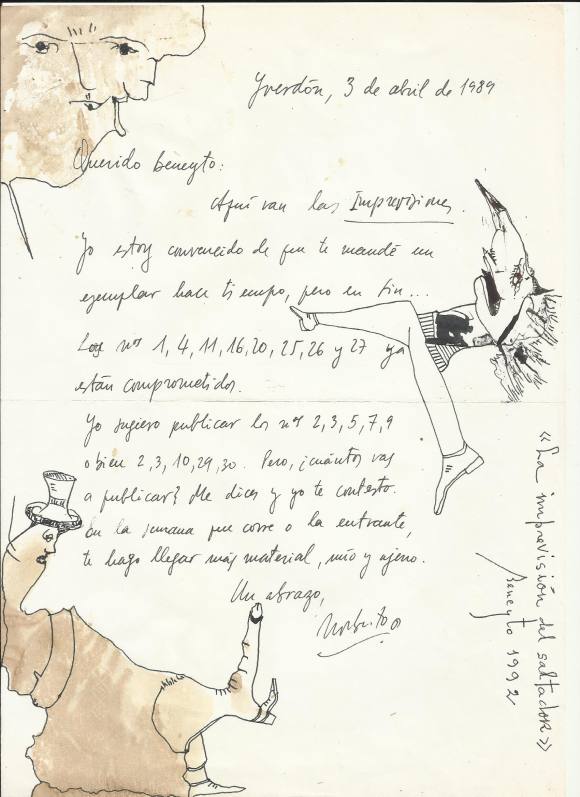 Yverdón, 3 de abril de 1989
Querido Beneyto:
Aquí van las Imprevisiones.
Yo estoy convencido de que te mandé un
ejemplar hace tiempo, pero en fin...
Los nos 1, 4, 11, 16, 20, 25, 26 y 27 ya
están comprometidos.
Yo sugiero publicar los nos 2, 3, 5, 7, 9
o bien 2, 3, 10, 29, 30. Pero, ¿cuántos vas
a publicar? Me dices y yo te contesto.
En la semana que corre o la entrante,
te hago llegar más material, mío y ajeno.
Un abrazo,
Norberto
«La imprevisión del saltador»
Beneyto 1992